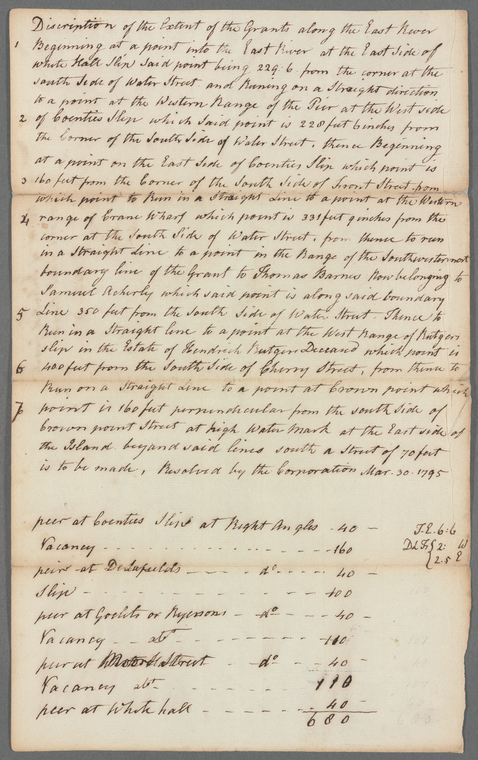 Discription of the Extent of the Grants along the East River
1 Beginning at a point into the East River at the East Side of
white Hall Slip Said point being 229.6 from the corner at the
south Side of Water Street and Runing on a Straight direction
to a point at the Western Range of the Peer at the West side
2 of Coenties Slip which Said point is 228 feet 6 inches from
the Corner of the South Side of Water Street, thence Beginning
at a point on the East Side of Coenties Slip which point is
3 160 feet from the Corner of the South Side of Front Street from
which point to Run in a Straight Line to a point at the Western
4 range of Crane Wharf which point is 331 feet 9 inches from the
corner at the South Side of Water Street, from thence to run
in a Straight Line to a point in the Range of the Southwesternmost
boundary line of the Grant to Thomas Barnes Now belonging to
Samuel Ackerly which said point is along said boundary
5 Line 350 feet from the South Side of Water Street Thence to
Run in a Straight line to a point at the West Range of Rutgers
slip in the Estate of Hendrick Rutgers Deceased which point is
6 400 feet from the South Side of Cherry Street, from thence to
Run on a Straight Line to a point at Crown point which
7 point is 160 feet perpendicular from the South Side of
Crown point Street at high Water Mark at the East side of
the Island beyand said lines south a Street of 70 feet
is to be made, Resolved by the Corporation Mar. 30. 1795
peer at Coenties Slip at Right Angles - 40 -
Vacancy - 160
peir at Delafields - do - 40 -
Slip - 100
peer at Goelets or Ryersons - do - 40 -
Vacancy - abt - 110
peer at Street - do - 40 -
Vacancy abt - 110
peer at White hall - 40 -
680
T.E. 6:6
2: W
2.5 E